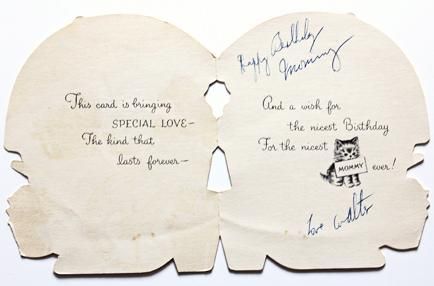 This card is bringing
SPECIAL LOVE—
The kind that
lasts forever—
Happy Birthday
Mommy
And a wish for
the nicest Birthday
For the nicest
MOMMY ever!
Love Walter